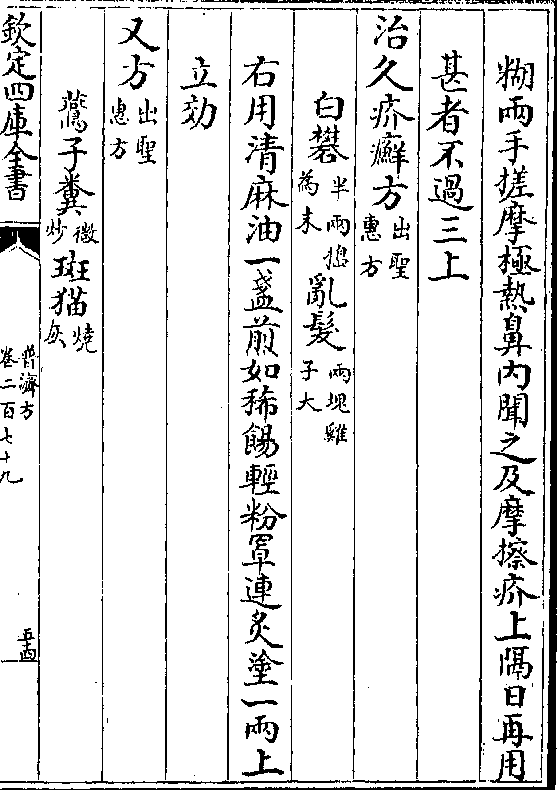 糊兩手搓摩極熱鼻内聞之及摩擦疥上隔日再用
甚者不過三上
治久疥癬方出聖惠方
白礬半兩搗為末亂髮兩塊雞子大
右用清麻油一盞煎如稀餳輕粉罩連炙塗一兩上
立効
又方出聖惠方
鷰子糞微炒斑猫燒灰
欽定四庫全書
普濟方
卷二百七十九
五十四